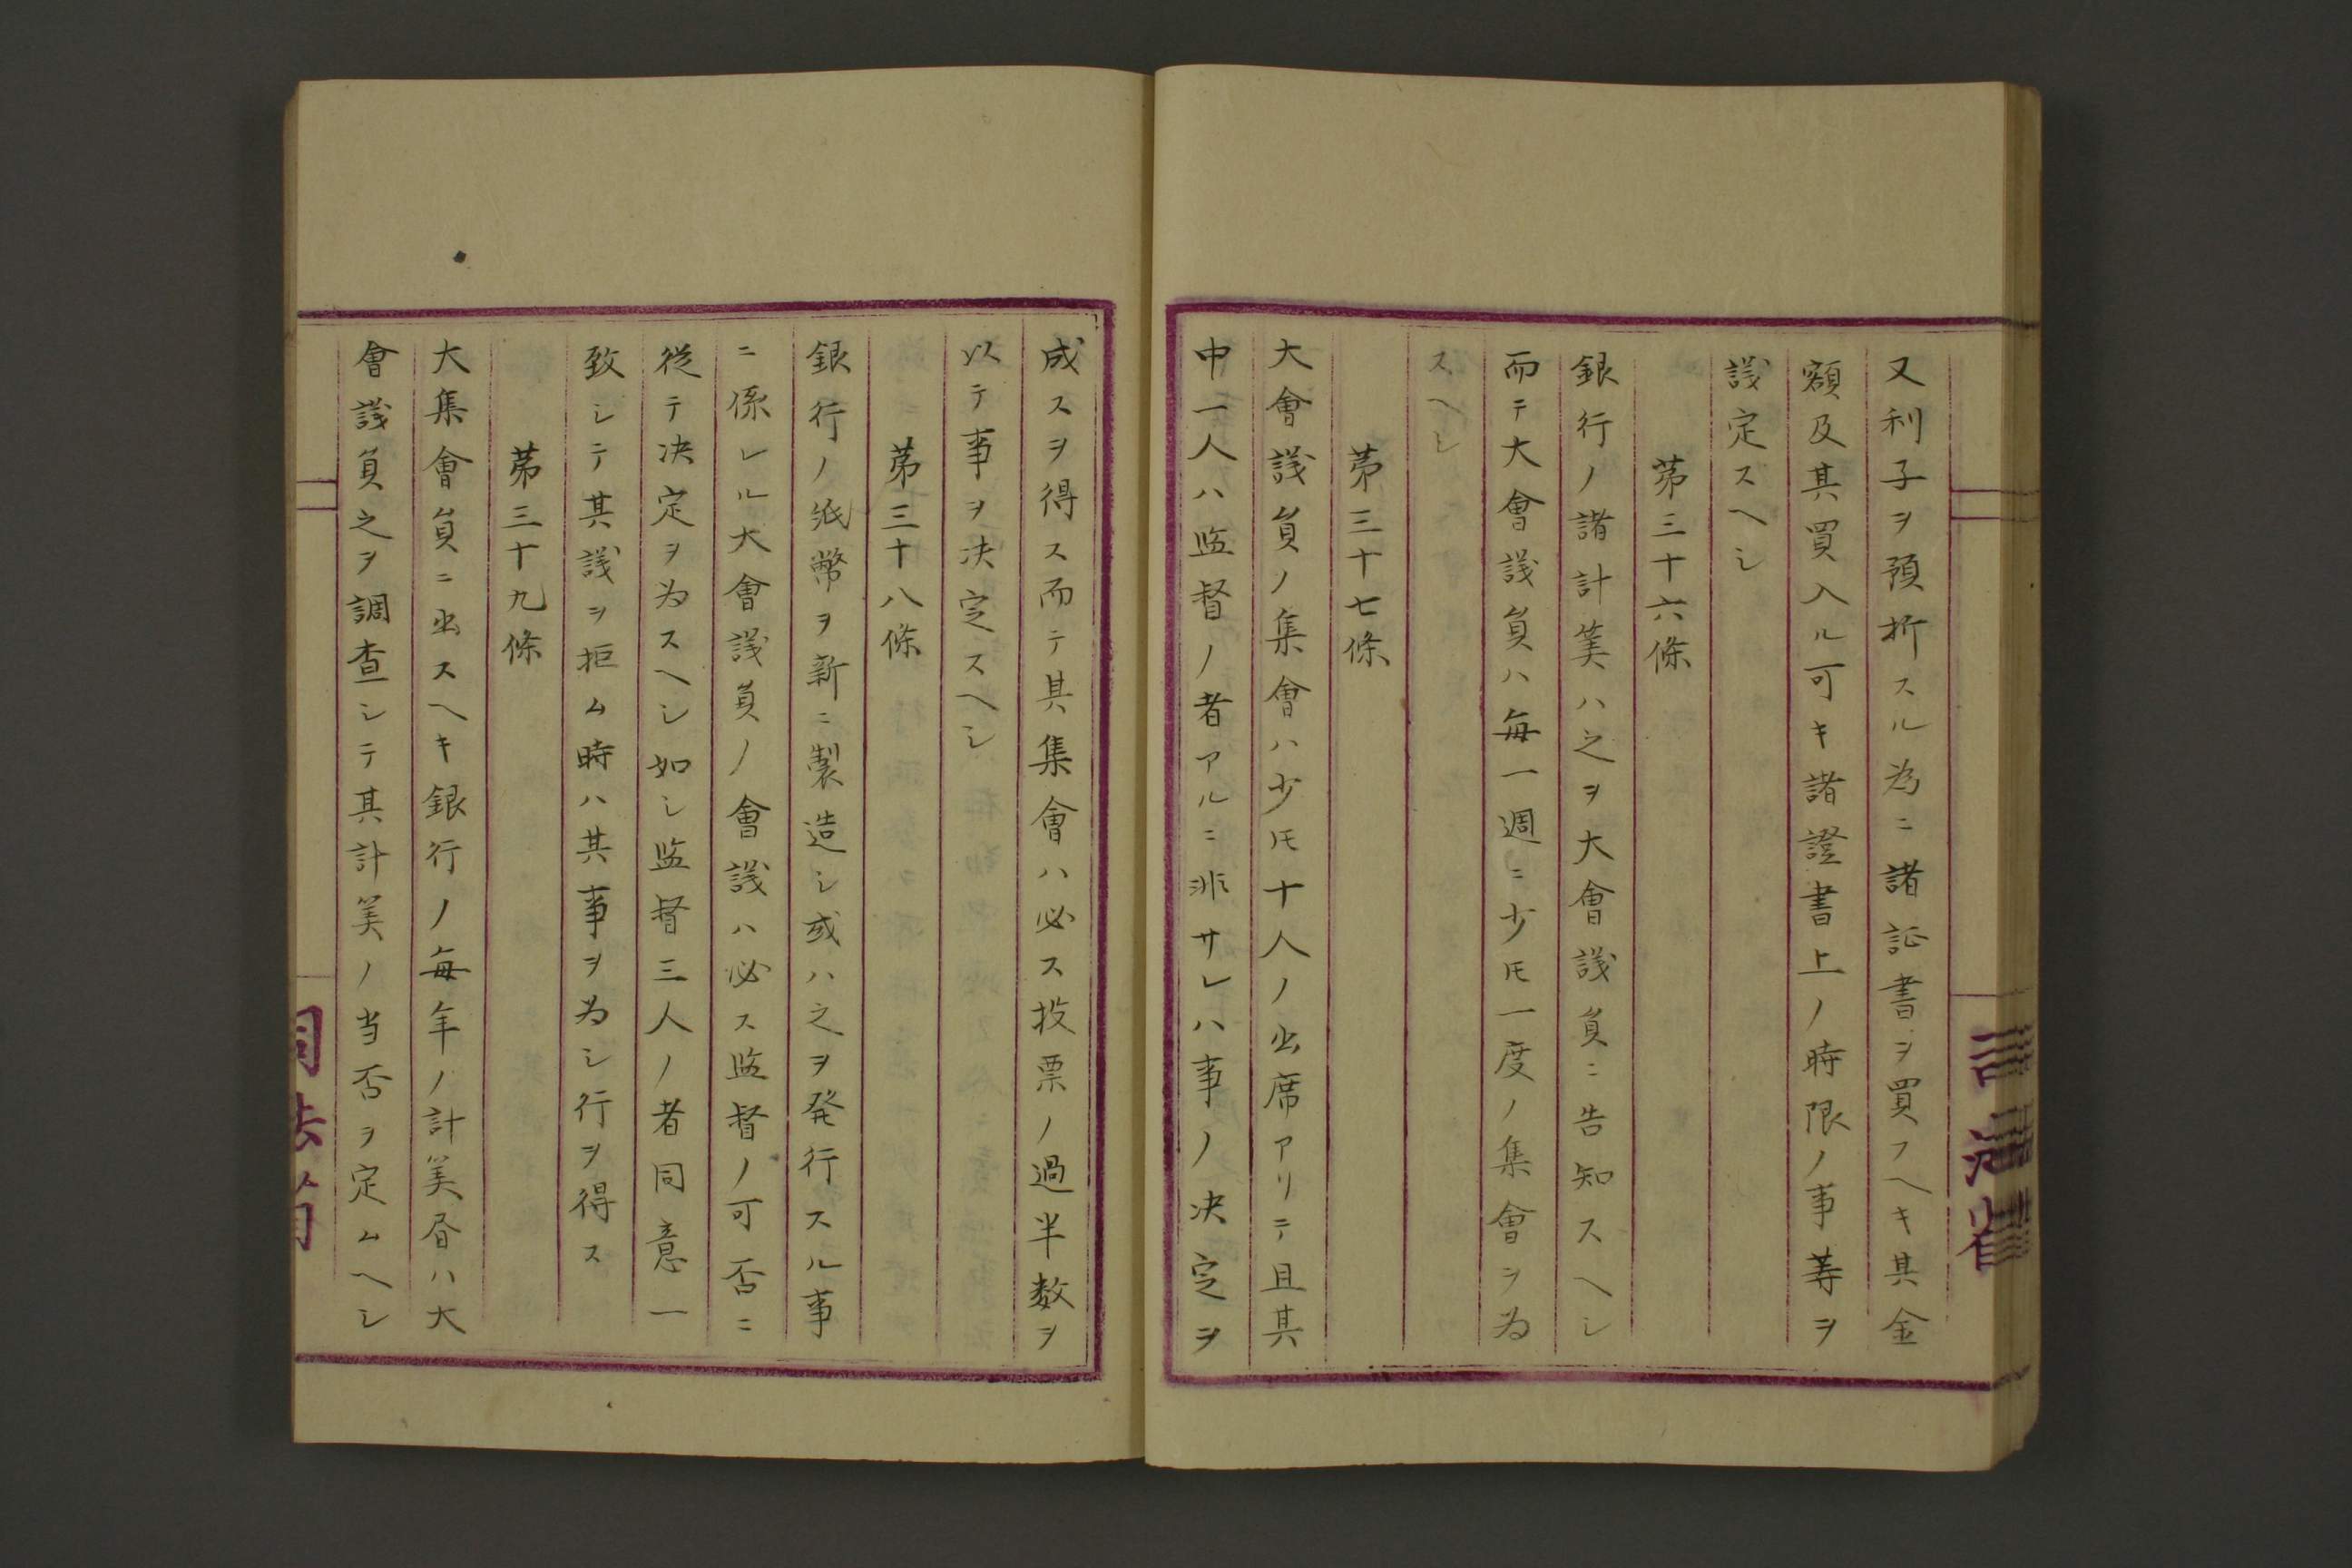 又利子ヲ預折スル為ニ諸証書ヲ買フヘキ其金
額及其買入ル可キ諸證書上ノ時限ノ事等ヲ
議定スヘシ
第三十六條
銀行ノ諸計筭ハ之ヲ大會議員ニ告知スヘシ
而テ大會議員ハ毎一週ニ少𪜈一度ノ集會ヲ為
スヘシ
第三十七條
大會議員ノ集會ハ少𪜈十人ノ出席アリテ且其
中一人ハ監督ノ者アルニ非サレハ事ノ决定ヲ
成スヲ得ス而テ其集會ハ必ス投票ノ過半数ヲ
以テ事ヲ决定スヘシ
第三十八條
銀行ノ紙幣ヲ新ニ製造シ或ハ之ヲ発行スル事
ニ係レル大會議員ノ會議ハ必ス監督ノ可否ニ
従テ决定ヲ為スヘシ如シ監督三人ノ者同意一
致シテ其議ヲ拒ム時ハ其事ヲ為シ行ヲ得ス
第三十九條
大集會員ニ出スヘキ銀行ノ毎年ノ計筭書ハ大
會議員之ヲ調査シテ其計筭ノ当否ヲ定ムヘシ
司法省